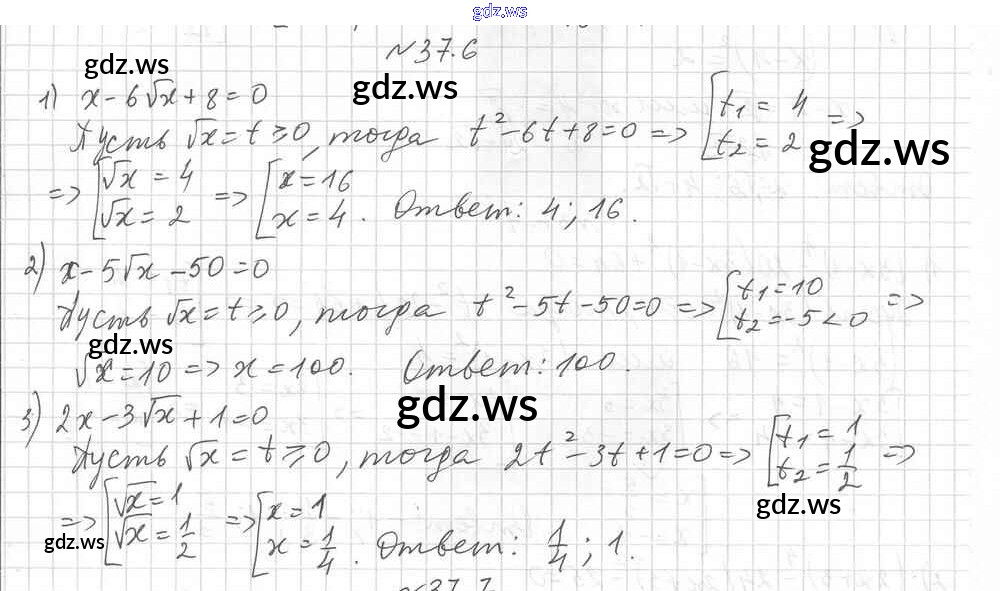 gdz.ws
№37.6
gdz.ws
gdz.ws
1) x - 6√x + 8 = 0
Пусть √x = t ≥ 0, тогда t² - 6t + 8 = 0 => [t₁ = 4 t₂ = 2 =>
gdz.ws
=> [√x = 4 √x = 2 => [x = 16 x = 4. Ответ: 4; 16.
2) x - 5√x - 50 = 0
Пусть √x = t ≥ 0, тогда t² - 5t - 50 = 0 => [t₁ = 10 t₂ = -5 < 0 =>
gdz.ws
√x = 10 => x = 100. Ответ: 100.
gdz.ws
3) 2x - 3√x + 1 = 0
Пусть √x = t ≥ 0, тогда 2t² - 3t + 1 = 0 => [t₁ = 1 t₂ = 1/2 =>
gdz.ws
=> [√x = 1 √x = 1/2 => [x = 1 x = 1/4. Ответ: 1/4; 1.
gdz.ws
№37.7